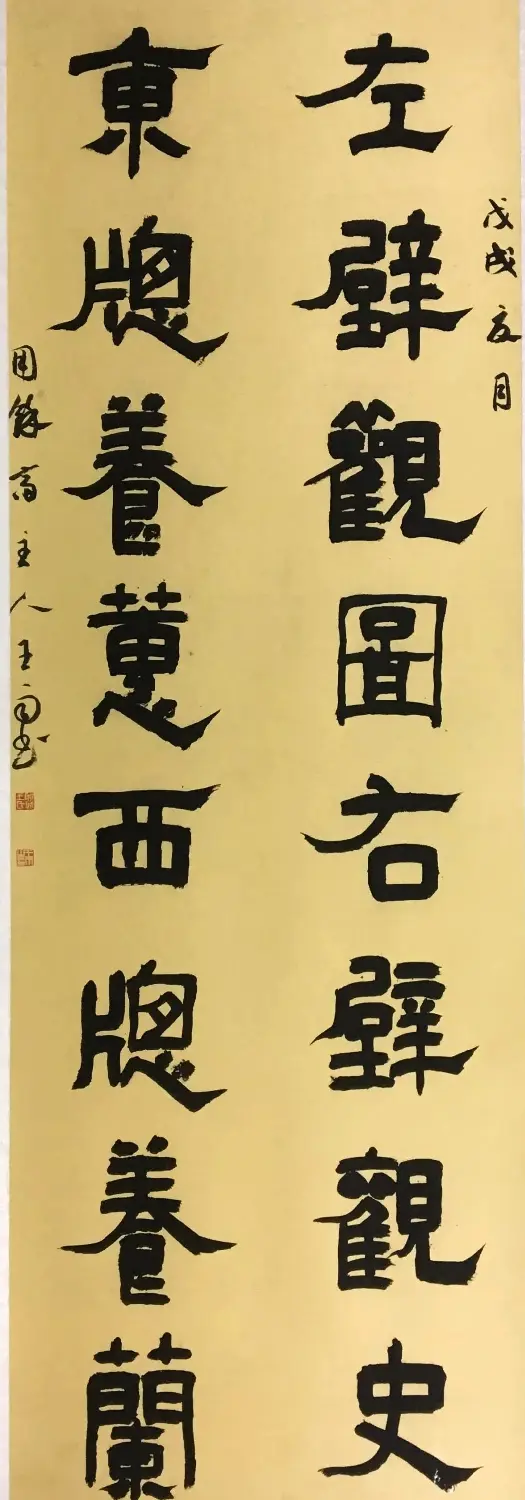 戊戌夏月
左壁觀圖右壁觀史
東牕養蕙西牕養蘭
主人王